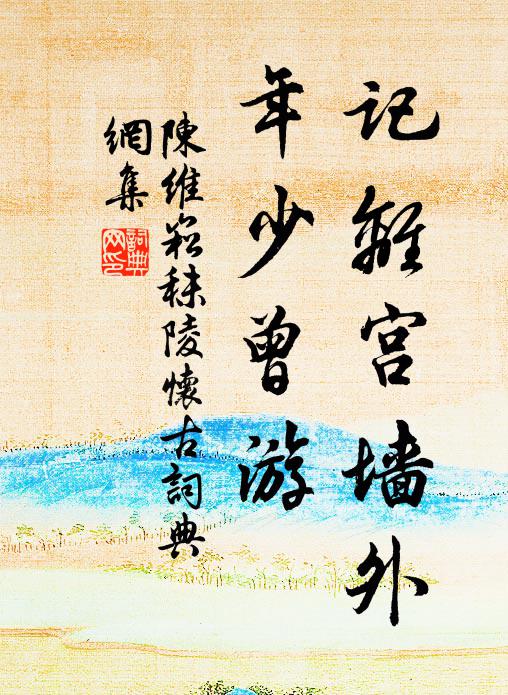 记離宫墙外
年少曾游
陳維崧秣陵懷古詞典
網集
詞典
网印